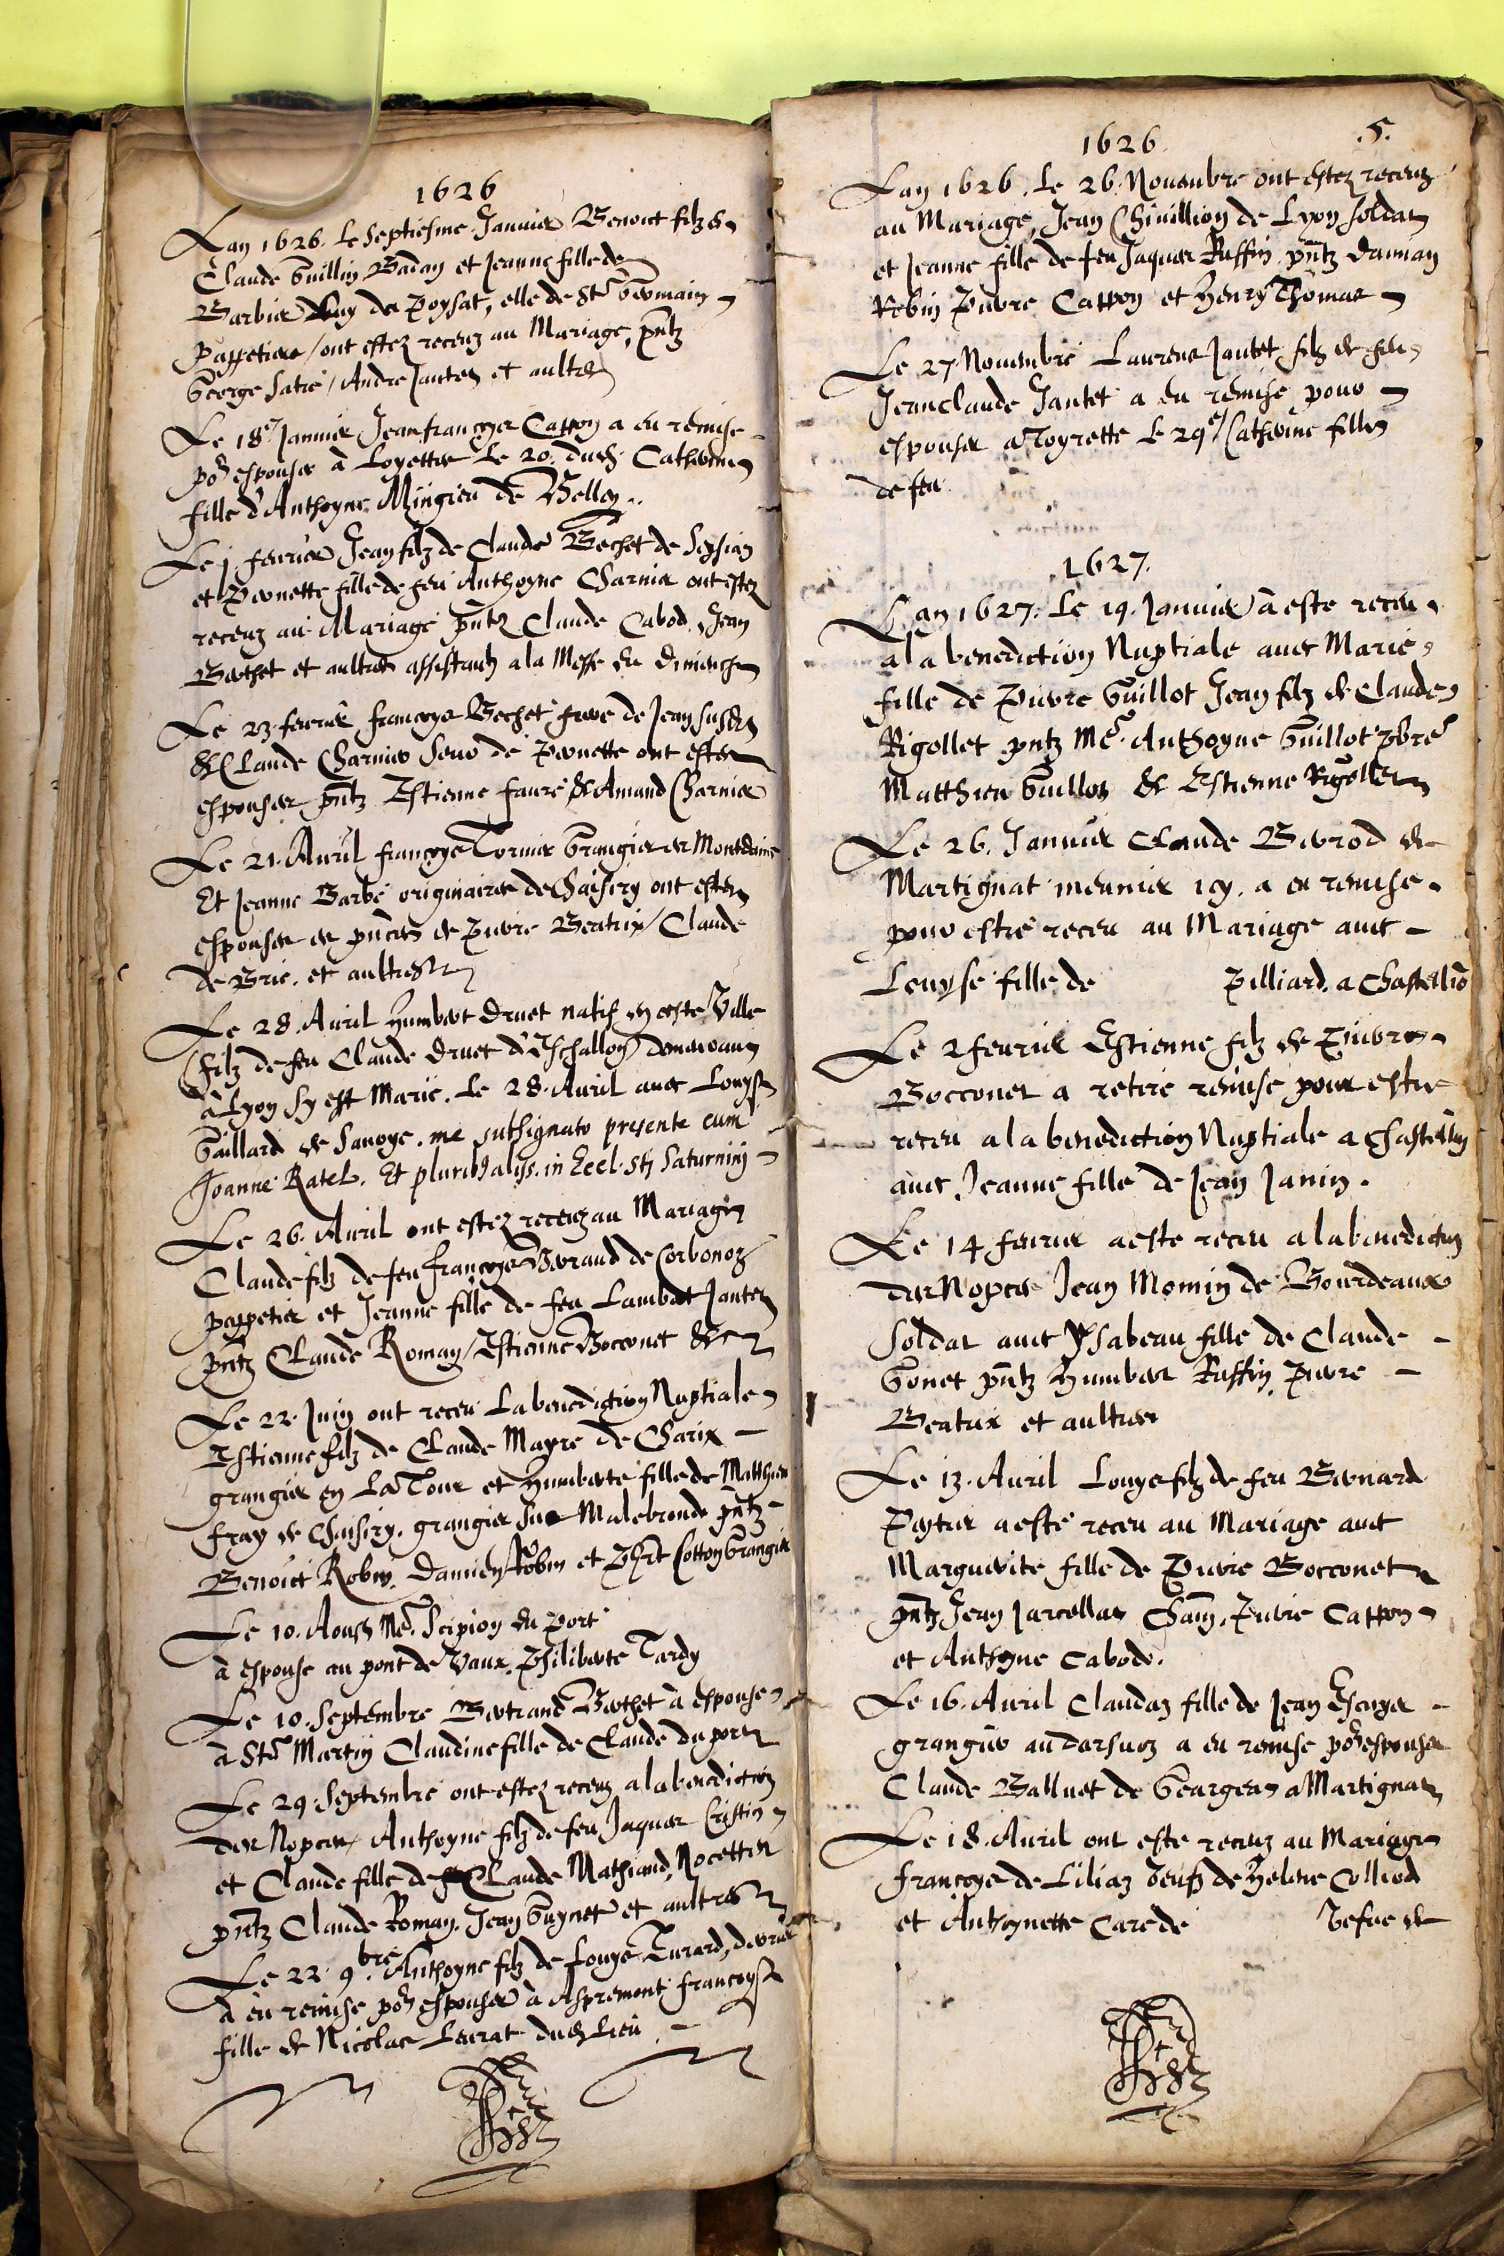 1626
Lan 1626. Le Septiesme Janvier Benoict filz de
Claude Guillin Badan et Jeanne fille de
Barbier Luy de Poysat, elle de St Germain
pappetier / ont estez receuz au Mariage, pntz
George Satre / Andre Jantet et aultres
Le 18e Janvier Jeanfrancoys Cappon a eu remise
por espouser à Loyettes Le 20. dudt Catherine
fille d'Anthoyne Mingieu de Belley..
Le j febvrier Jean filz de Claude Bechet de
et Pernette fille de feu Anthoyne Charnier ont estez
receuz au Mariage pntz Claude Cabod, Jean
Berthet et aultres assistants a la Messe du dimenche
Le 23. febvrier francoyse Bechet seur de Jean susdt
& Claude Charnier de Pernette ont estez
espouser pntz Estienne faure & Amand Charnier
Le 21. Avril francoys Tornier Grangier de
Et Jeanne Barbe originaires de Chaisiry ont estez
espouser es pnces de Pierre Beatrix / Claude
de Brie. et aultres
Le 28. Avril Humbert Druet natif de ceste Ville
filz de feu Claude Druet d'Eschallon demeurant
à Lyon sy est Marié. Le 28. Avril avec Louyse
Gaillard de Savoye. me subsignato presente cum
Joanne Ratel. Et pluribs alijs. in Eccl. Sti Saturnini
Le 26. Avril ont estez receuz au Mariage
Claude filz de feu francoys Beraud de Corbonoz
pappetier et Jeanne fille de feu Lambert Jantet
pntz Claude Roman / Estienne Bocconet &c
Le 22. Juin ont receu La benediction Nuptiale
Estienne filz de Claude Mayre de Charix
grangier en La Tour et Humberte fille de Matthieu
fray de Chesiry. grangier sus Malebronde pntz
Benoict Robin, Damien Robin et Phrt Cotton Grangier
Le 10. Aoust Me. Scipion du Port
à espouse au pont de Vaux. Philiberte Tardy
Le 10. Septembre Bertrand Berthet à espouse
à St Martin Claudine fille de Claude du port
Le 29. Septembre ont estez receuz a la benediction
des Nopces / Anthoyne filz de feu Jaques Cristin
et Claude fille de Claude Mathiand, Nocettin
pntz Claude Roman. Jean Guynet et aultres
Le 22. 9bre. Anthoyne filz de Louys Turard,
à eu remise por espouser à Aspremont francoyse
fille de Nicolas Leurat dudt Lieu
1626 .5.
Lan 1626. Le 26. Novembre ont estez receuz
au Mariage, Jean Chivillion de Lyon soldat
et Jeanne fille de feu Jaques Ruffin, pntz Damian
Robin Pierre Cappon et Henry Thomas
Le 27. Novembre Laurens Jantet filz de feu
Jeanclaude Jantet a eu remise pour
espouser a Toyrette Le 29e / Catherine fille
de feu
1627.
Lan 1627. Le 19. Janvier à este receu
a la benediction Nuptiale avec Marie
fille de Pierre Guillot Jean filz de Claude
Rigollet pntz Mre. Anthoyne Guillot pbre
Matthieu Guillot & Estienne Rigollet
Le 26. Janvier Claude Berrod de
Martignat meunier icy. a eu remise
pour estre receu au Mariage avec
Louyse fille de Pilliard. a Chastellio
Le 2 febvrier Estienne filz de Pierre
Bocconet a retire remise pour estre
receu a la benediction Nuptiale a Chastillon
avec Jeanne fille de Jean Janin.
Le 14 febvrier a este receu a la benediction
des Nopces Jean Momin de Bourdeaux
soldat avec Ysabeau fille de Claude
Gonet pntz Humbert Ruffin, Pierre
Beatrix et aultres
Le 13. Avril Louys filz de feu Bernard
a este receu au Mariage avec
Marguerite fille de Pierre Bocconet
pntz Jean Jarcellat Pierre Cappon
et Anthoyne Cabod.
Le 16. Avril Claudaz fille de Jean Escuyer
grangier au darsuoz a eu remise por espouser
Claude Balluet de Geargeas a Martignat
Le 18. Avril ont este receuz au Mariage
francoys de Liliaz veuf de Helene Colliod
et Anthoynette Care de Vefve de